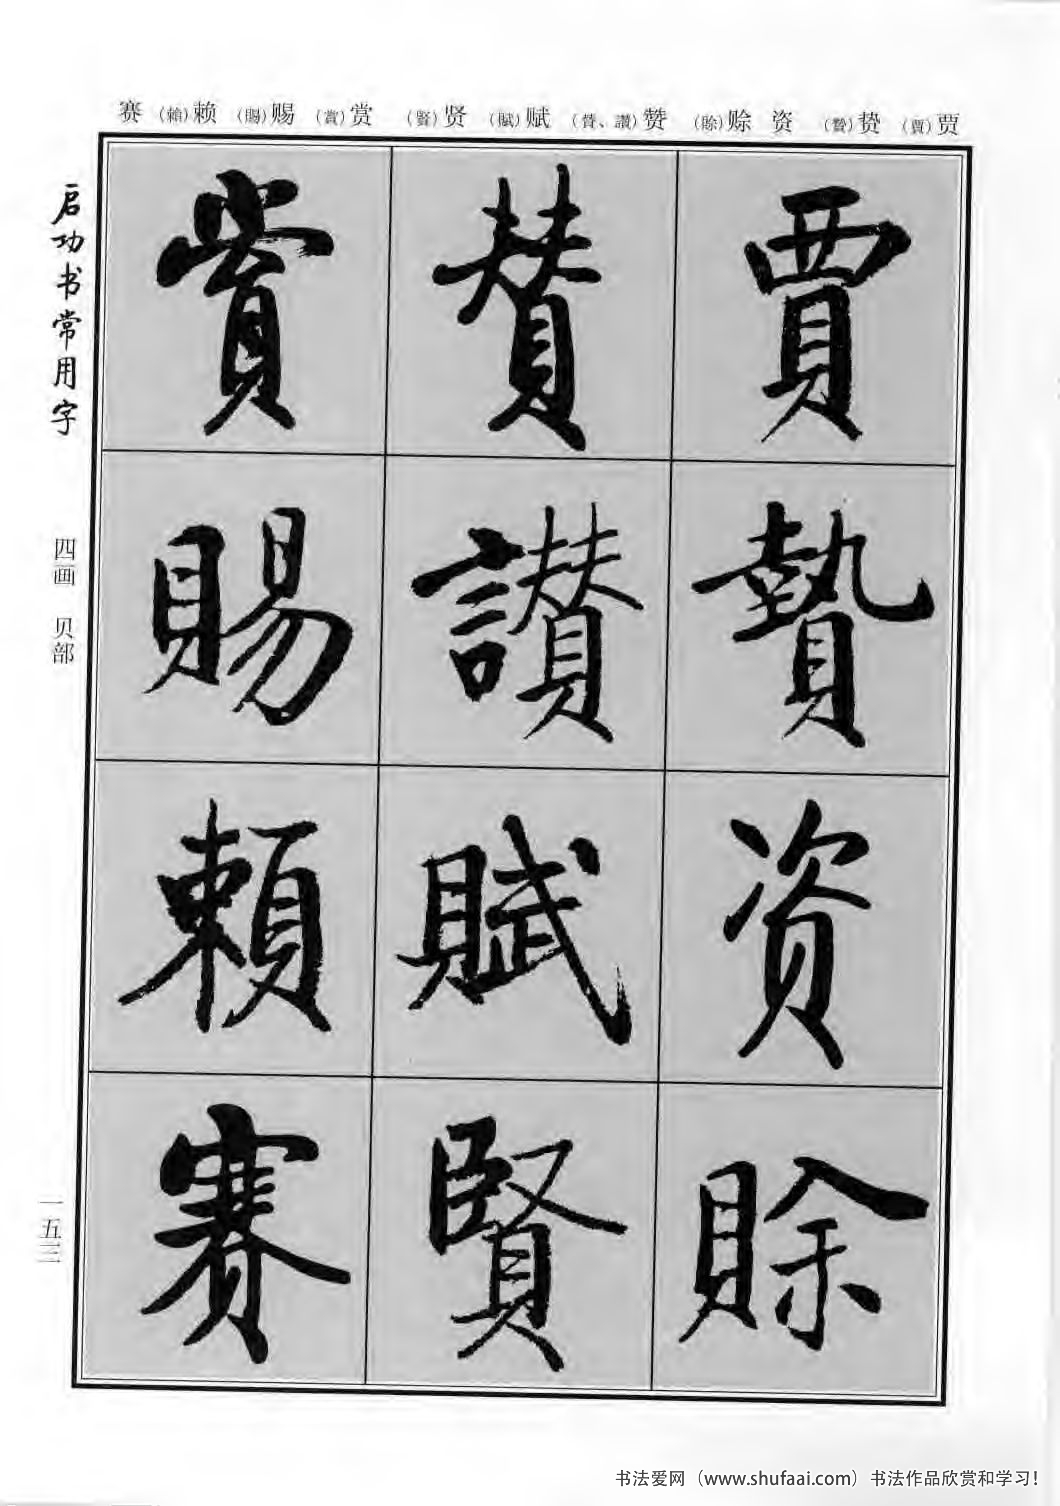 贾(賈) 贽(贄) 资 赊(賒) 赞(贊、讚) 赋(賦) 贤(賢) 赏(賞) 赐(賜) 赖(賴) 赛
賈
贄
资
賒
賛
讃
賦
賢
賞
賜
頼
赛
启功书常用字
四画 贝部
一五三
书法爱网（www.shufaai.com）书法作品欣赏和学习！